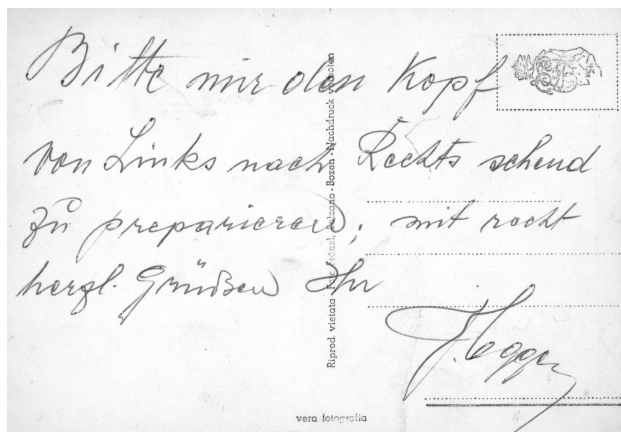 Bitte mir den Kopf
von Links nach Rechts sehend
zu preparieren; mit recht
herzl. Grüßen Ihr
Riprod. vietata - Foto Fränzl, Bolzano - Bozen - Nachdruck verboten
vera fotografia